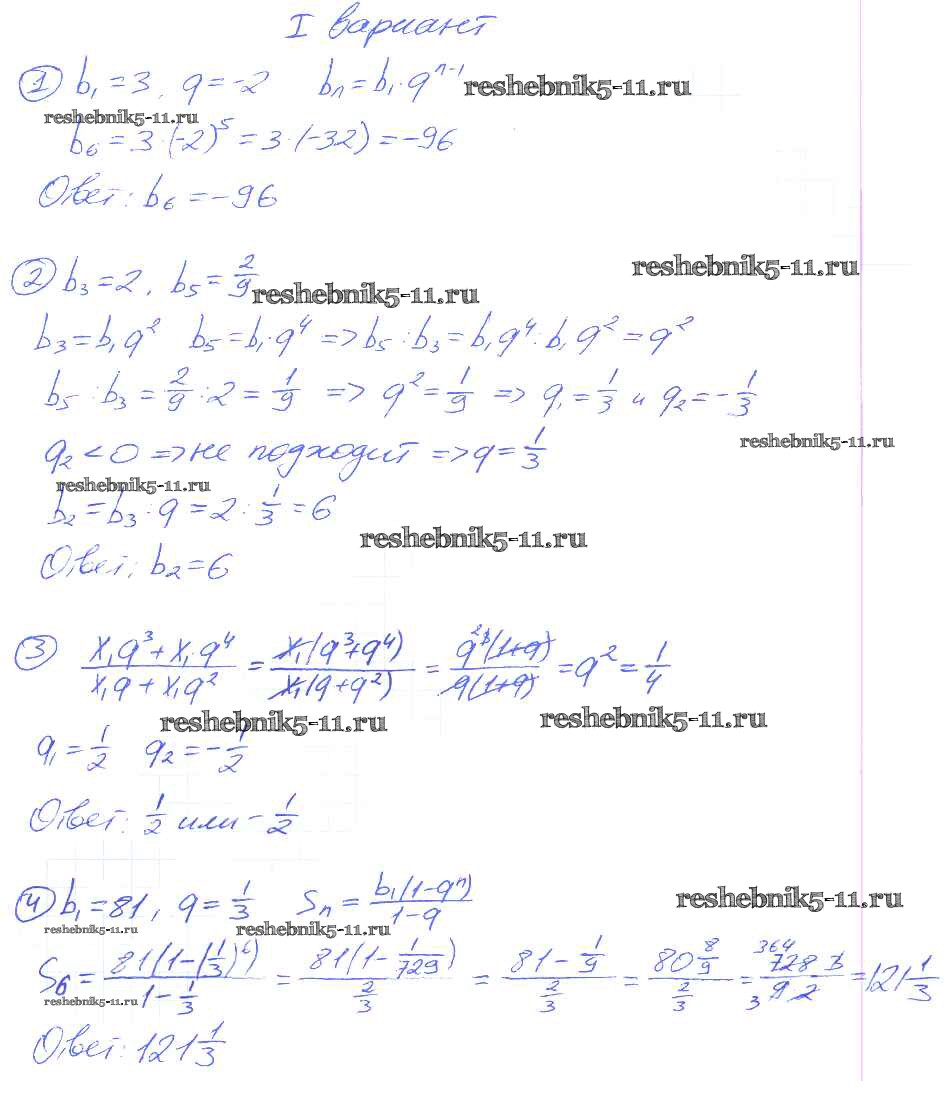 I вариант
① b₁ = 3, q = -2 bₙ = b₁ · qⁿ⁻¹ reshebnik5-11.ru
reshebnik5-11.ru
b₆ = 3 · (-2)⁵ = 3 · (-32) = -96
Ответ: b₆ = -96
② b₃ = 2, b₅ = 2/9 reshebnik5-11.ru
reshebnik5-11.ru
b₃ = b₁q² b₅ = b₁ · q⁴ => b₅ : b₃ = b₁q⁴ : b₁q² = q²
b₅ : b₃ = 2/9 : 2 = 1/9 => q² = 1/9 => q₁ = 1/3 и q₂ = -1/3
reshebnik5-11.ru
q₂ < 0 => не подходит => q = 1/3
reshebnik5-11.ru
b₂ = b₃ : q = 2 : 1/3 = 6
reshebnik5-11.ru
Ответ: b₂ = 6
③ (x₁q³ + x₁ · q⁴)/(x₁q + x₁q²) = (x₁(q³ + q⁴))/(x₁(q + q²)) = (q³ ²(1+q))/(q(1+q)) = q² = 1/4
reshebnik5-11.ru reshebnik5-11.ru
q₁ = 1/2 q₂ = -1/2
Ответ: 1/2 или -1/2
④ b₁ = 81, q = 1/3 Sₙ = (b₁(1-qⁿ))/(1-q) reshebnik5-11.ru
reshebnik5-11.ru reshebnik5-11.ru
S₆ = (81(1-(1/3)⁶))/(1-1/3) = (81(1-1/729))/(2/3) = (81-1/9)/(2/3) = (80 8/9)/(2/3) = (364 728 · 3)/(3 9 · 2) = 121 1/3
reshebnik5-11.ru
Ответ: 121 1/3